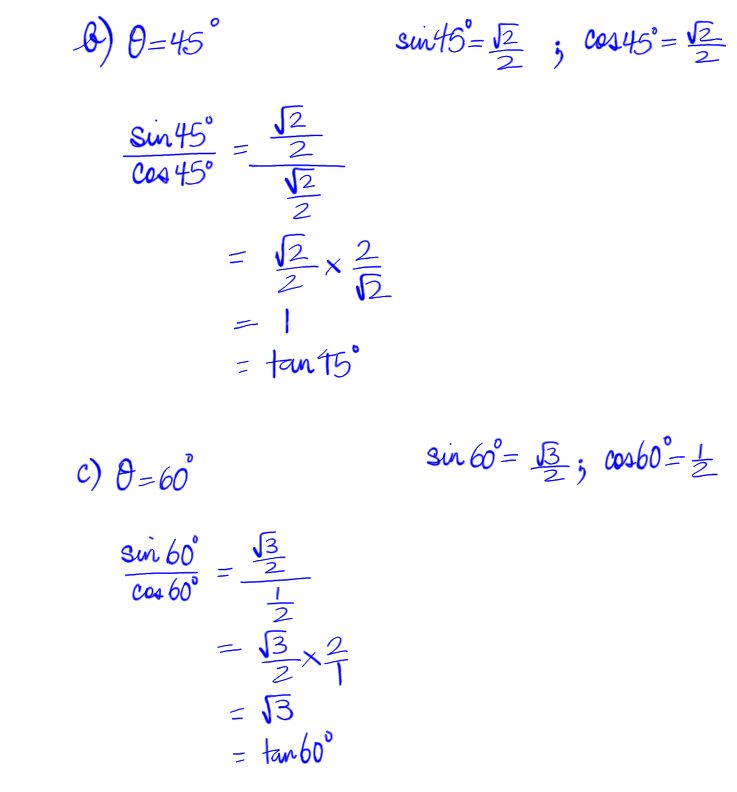 b) θ=45° sin45°=√2/2 ; cos45°=√2/2
sin45°/cos45° = (√2/2)/(√2/2)
= √2/2 × 2/√2
= 1
= tan45°
c) θ=60° sin60°= √3/2 ; cos60°=1/2
sin60°/cos60° = (√3/2)/(1/2)
= √3/2 × 2/1
= √3
= tan60°